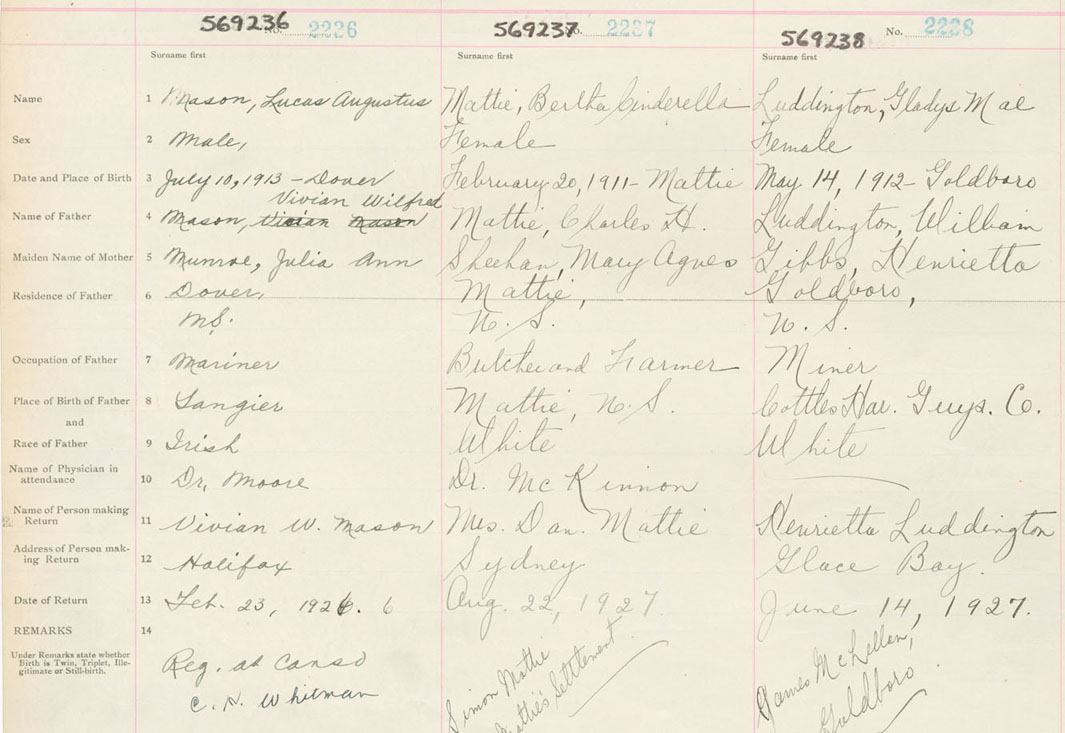 569236 No. 2236 569237 No. 2237 569238 No. 2238
Surname first Surname first Surname first
Name 1 Mason, Lucas Augustus Mattie, Bertha Cinderella Luddington, Gladys Mae
Sex 2 Male, Female Female
Date and Place of Birth 3 July 10, 1913 - Dover February 20, 1911 - Mattie May 14, 1912 - Goldboro
Vivian Wilfred
Name of Father 4 Mason, Vivian Mason Mattie, Charles H. Luddington, William
Maiden Name of Mother 5 Munroe, Julia Ann Sheehan, Mary Agnes Gibbs, Henrietta
Residence of Father 6 Dover, Mattie, Goldboro,
N.S. N. S. N. S.
Occupation of Father 7 Mariner Butcher and Farmer Miner
Place of Birth of Father 8 Tangier Mattie, N.S. Cottles Har. Guys. Co.
and
Race of Father 9 Irish White White
Name of Physician in
attendance 10 Dr. Moore Dr. McKinnon
Name of Person making
Return 11 Vivian W. Mason Mrs. Dan. Mattie Henrietta Luddington
Address of Person mak-
ing Return 12 Halifax Sydney Glace Bay.
Date of Return 13 Feb. 23, 1926. 6 Aug. 22, 1927 June 14, 1927.
REMARKS 14
Under Remarks state whether
Birth is Twin, Triplet, Ille-
gitimate or Still-birth.
Reg. at Canso
C. N. Whitman
Simon Mattie
Mattie's Settlement.
James McLellan,
Goldboro